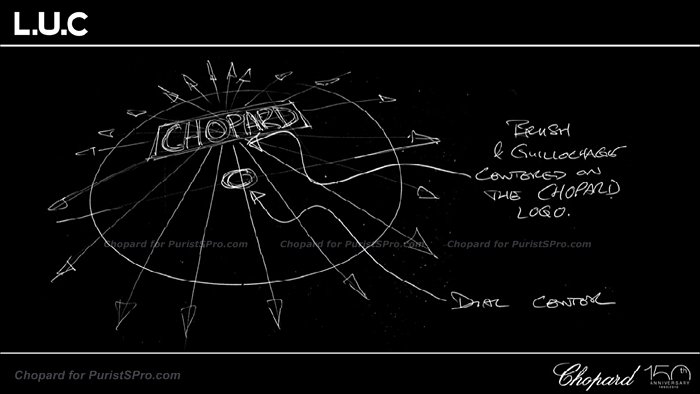 L.U.C
CHOPARD
BRUSH
& GUILLOCHAGE
CENTERED ON
THE CHOPARD
LOGO.
Chopard for PuristSPro.com
Chopard for PuristSPro.com
Chopard for PuristSPro.com
DIAL CENTER
Chopard for PuristSPro.com
Chopard 150th
ANNIVERSARY